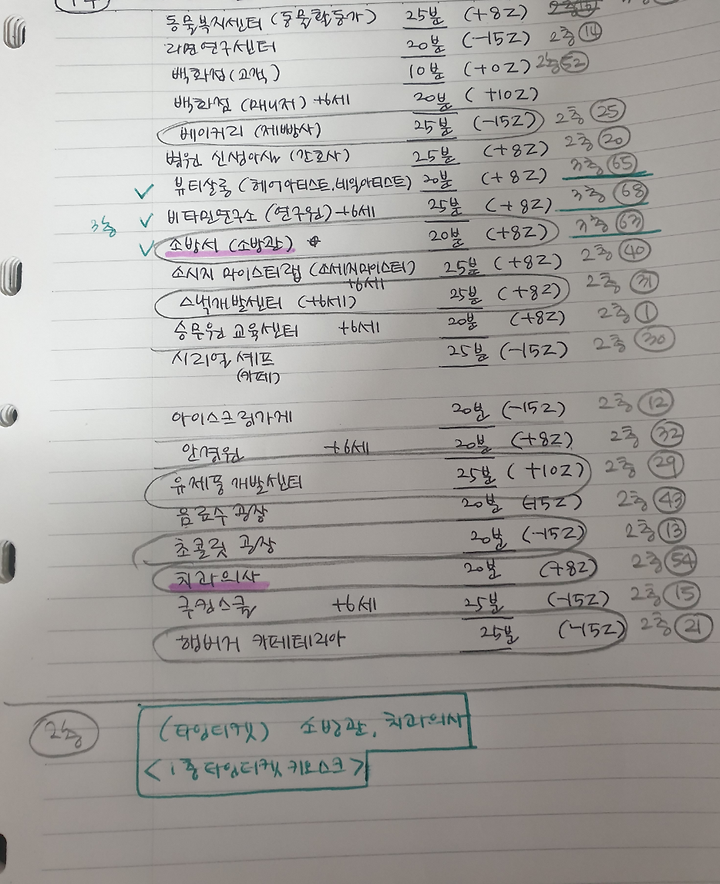 동물복지센터 (동물활동가) 25분 (+8Z)
라면연구센터 20분 (-15Z) 2층 14
백화점 (고객) 10분 (+0Z) 2층 52
백화점 (매니저) +6세 20분 (+10Z)
베이커리 (제빵사) 25분 (-15Z) 2층 25
병원 신생아실 (간호사) 25분 (+8Z) 2층 20
뷰티살롱 (헤어아티스트, 네일아티스트) 20분 (+8Z) 3층 65
3층 비타민연구소 (연구원) +6세 25분 (+8Z) 3층 68
소방서 (소방관) 20분 (+8Z) 3층 63
소시지 마이스터랩 (소세지마이스터) 25분 (+8Z) 2층 40
+6세
스낵개발센터 (+6세) 25분 (+8Z) 2층 31
승무원 교육센터 +6세 20분 (+8Z) 2층 1
시리얼 셰프 25분 (-15Z) 2층 30
(카페)
아이스크림가게 20분 (-15Z) 2층 12
안경원 +6세 20분 (+8Z) 2층 32
유제품 개발센터 25분 (+10Z) 2층 29
음료수 공장 20분 (-15Z) 2층 43
초콜릿 공장 20분 (-15Z) 2층 13
치과의사 20분 (+8Z) 2층 54
쿠킹스쿨 +6세 25분 (-15Z) 2층 15
햄버거 카페테리아 25분 (-15Z) 2층 21
2층 (타임티켓) 소방관, 치과의사
<1층 타임티켓 키오스크>